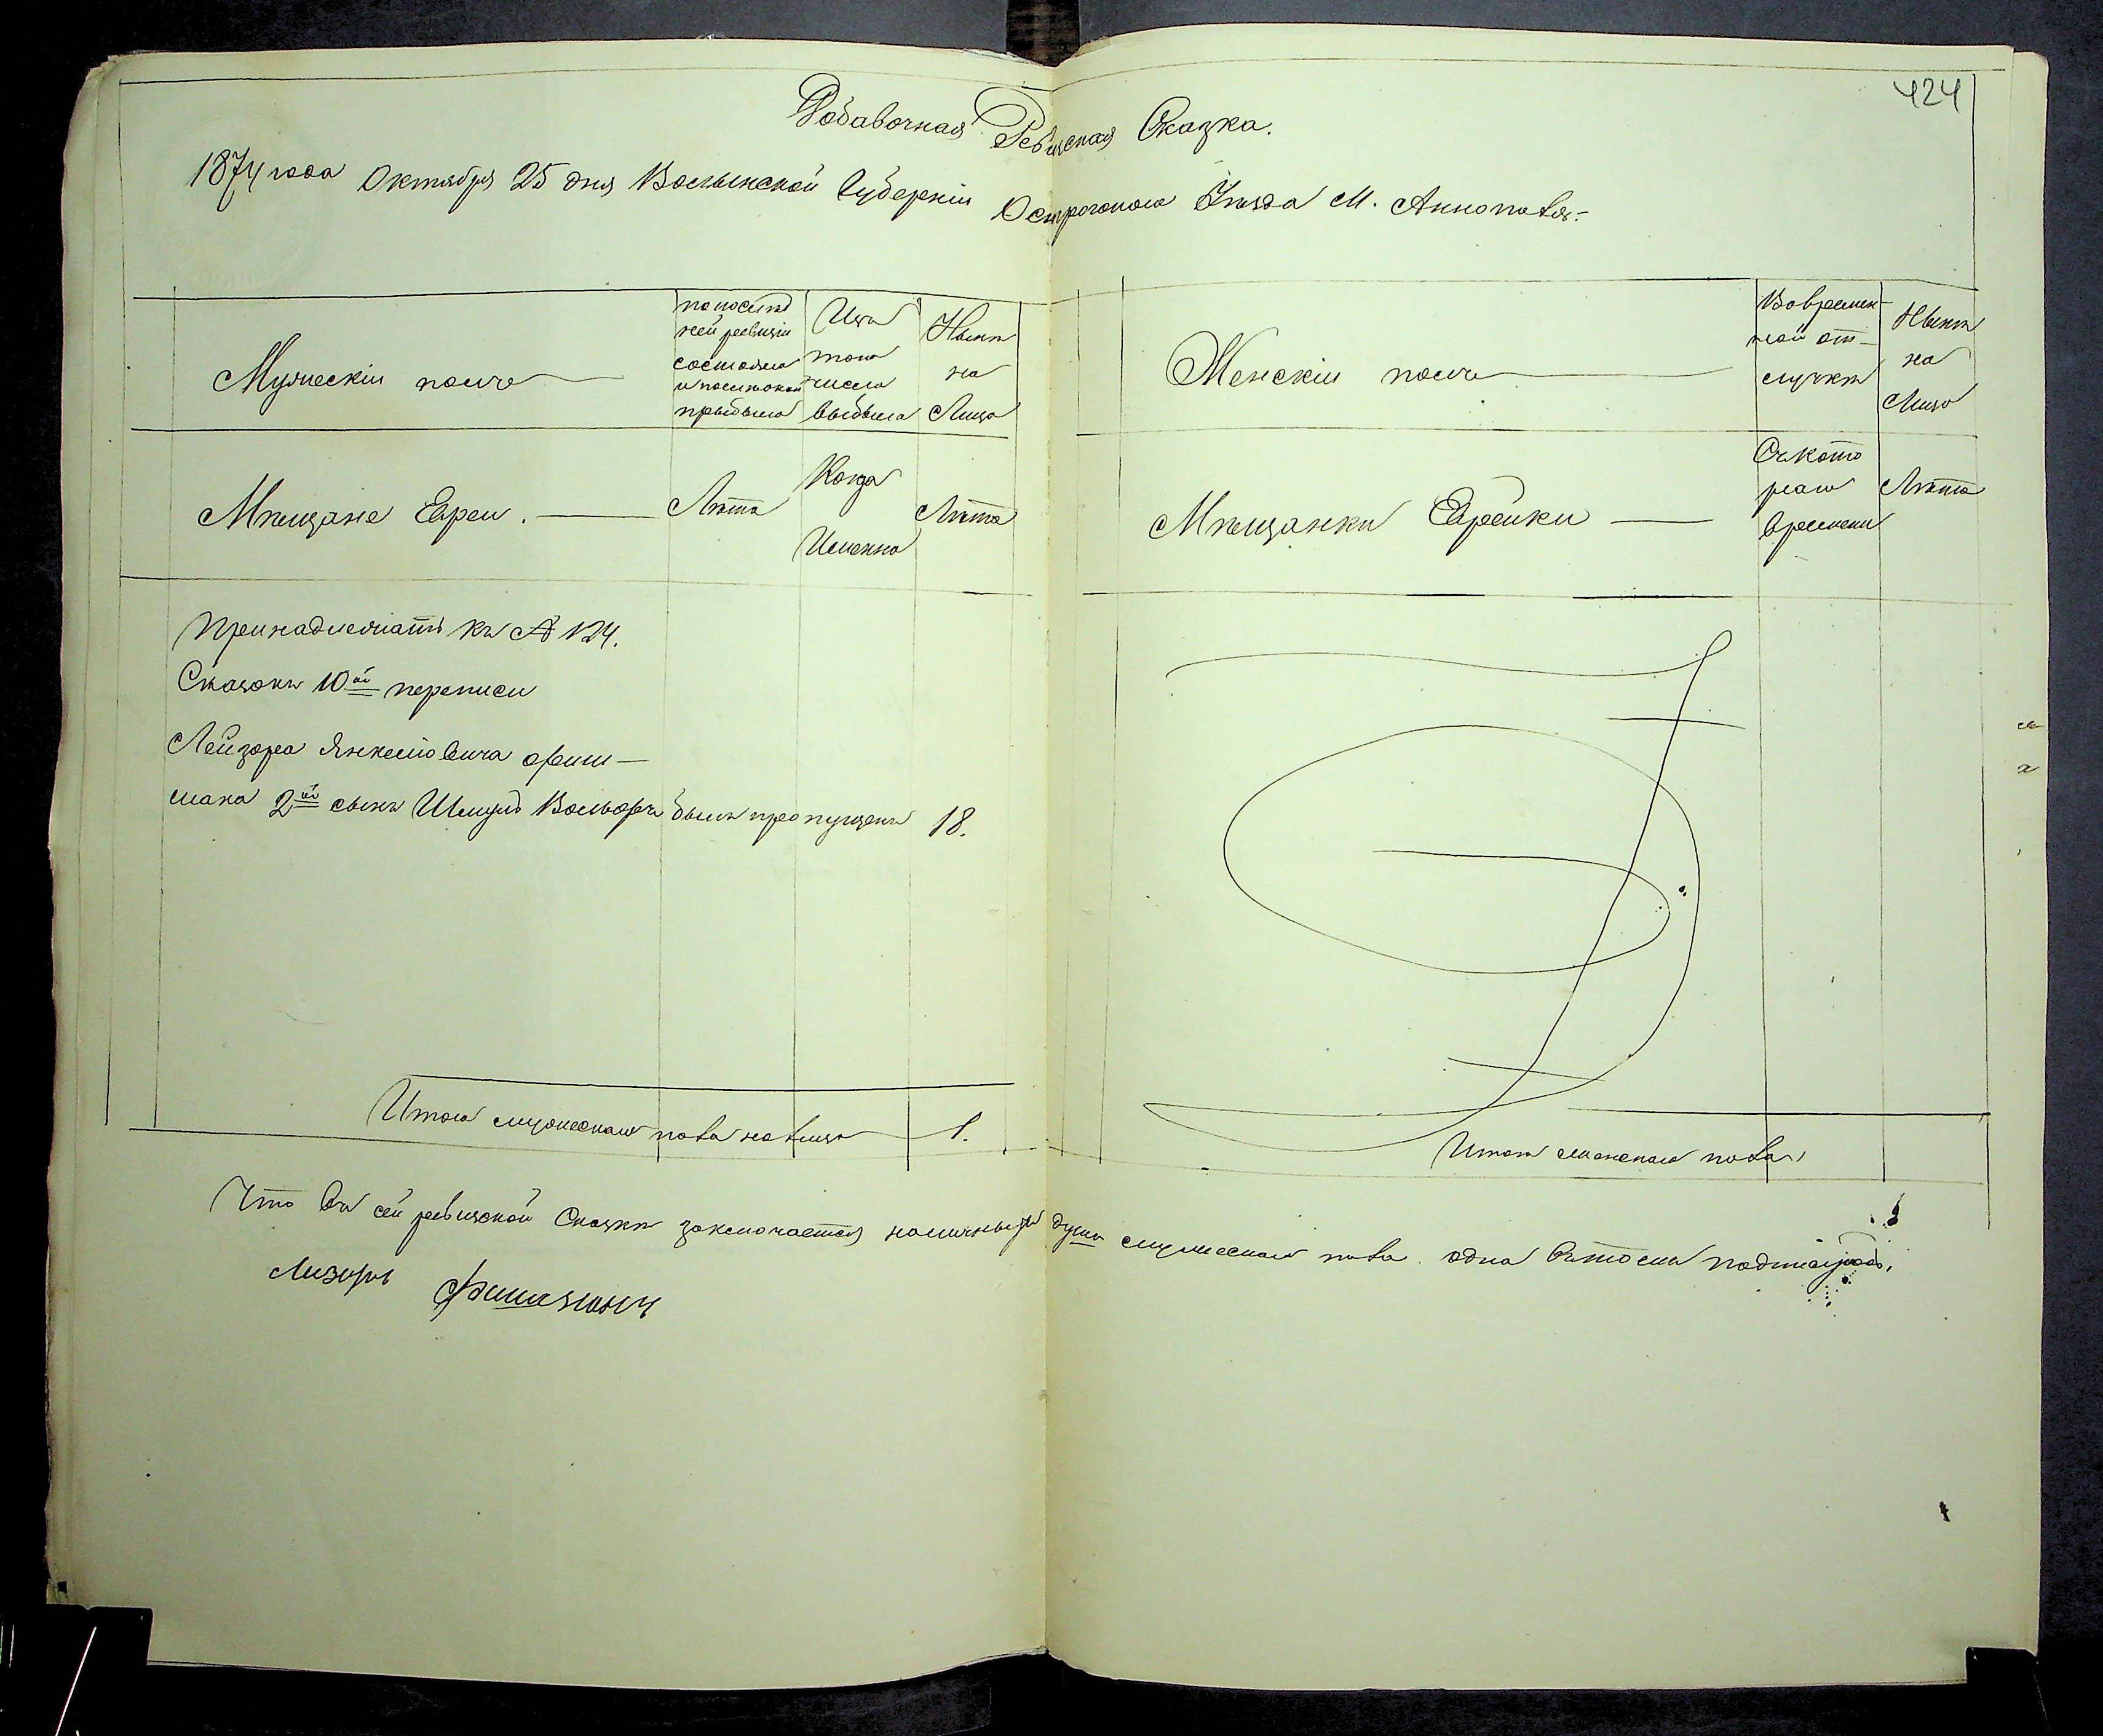 424
Добавочная Ревизская Сказка.
1874 года Октября 25 дня Волынской Губерніи Острогскаго Уѣзда М. Аннополя.
Мужескій полъ
по послѣд
ней ревизіи
состояло
и послѣ оной
прибыло
Изъ
того
числа
выбыло
Нынѣ
на
Лицо
Мѣщане Евреи.
Лѣта
Когда
Именно
Лѣта
Принадлежатъ къ № 124.
Сказокъ 10ой переписи
Лейзора Янкелiовича Фиш-
мана 2ой сынъ Шмуль Вольфъ былъ пропущенъ 18.
Итого мужескаго пола на лицо 1.
Женскій полъ
Во времен-
ной от-
лучкѣ
Нынѣ
на
Лицо
Мѣщанки Еврейки
Съ кото
раго
времени
Лѣта
Итого женскаго пола
Что въ сей ревизской Сказкѣ заключается наличныхъ душъ мужескаго пола одна въ томъ
Лизеръ Фишман